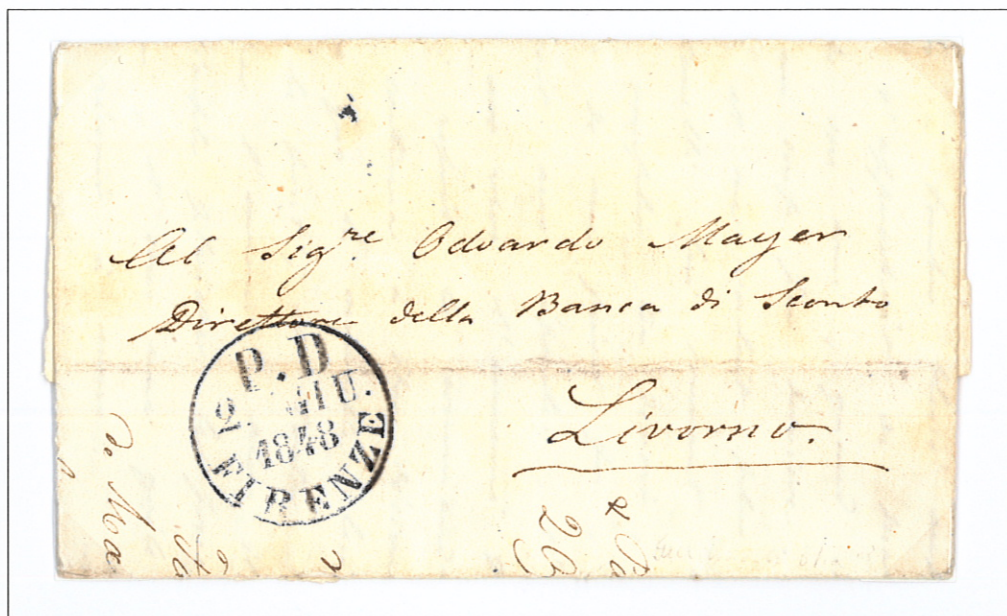 Al Sig.re Odoardo Mayer
Direttore della Banca di Sconto
Livorno.
P.D
2. GIU.
1848
FIRENZE